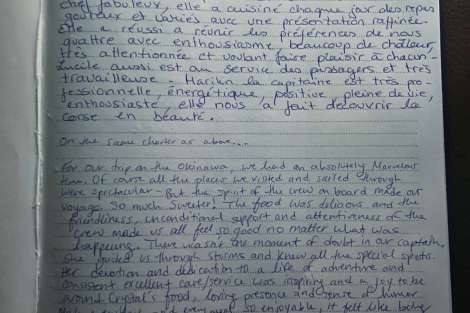 chef fabuleux, elle a cuisiné chaque jour des repas
gouteux et variés, avec une présentation raffinée.
elle a réussi à réunir les préférences de nous
quattre avec enthousiasme, beaucoup de chaleur,
très attentionnée et voulant faire plaisir à chacun-
aussi est au service des passagers et très
travailleuse. la capitaine est très pro
fessionnelle, énergétique, positive pleine de vie,
enthousiaste, elle nous a fait découvrir la
Corse en beauté.
On the same charter as above...
For our trip on the Okinawa, we had an absolutely Marvelous
time. Of course all the places we visited and sailed through
were spectacular - But the spirit of the crew on board made our
voyage So much Sweeter! The food was delicious and the
friendliness, unconditional support and attentiveness of the
crew made us all feel so good no matter what was
happening. There wasn't one moment of doubt in our captain,
she guided us through storms and knew all the special spots.
Her devotion and dedication to a life of adventure and
consistent excellent care/service was inspiring and a joy to be
around. Crystal's food, loving presence and sense of humor
so enjoyable, it felt like being